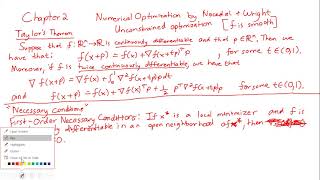 Chapter 2 Numerical Optimization by Nocedal + Wright
Taylor's Theorem Unconstrained optimization [f is smooth]
Suppose that f: ℝⁿ→ℝ is continuously differentiable and that p∈ℝⁿ. Then we
have that: f(x+p) = f(x) + ∇f(x+tp)ᵀp for some t∈(0,1).
Moreover, if f is twice continuously differentiable, we have that
∇f(x+p) = ∇f(x) + ∫₀¹ ∇²f(x+tp)p dt
and f(x+p) = f(x) + ∇f(x)ᵀp + ½ pᵀ∇²f(x+tp)p for some t∈(0,1).
"Necessary Conditions"
First-Order Necessary Conditions: If x* is a local minimizer and f is
differentiable in an open neighborhood of x*, then
0.